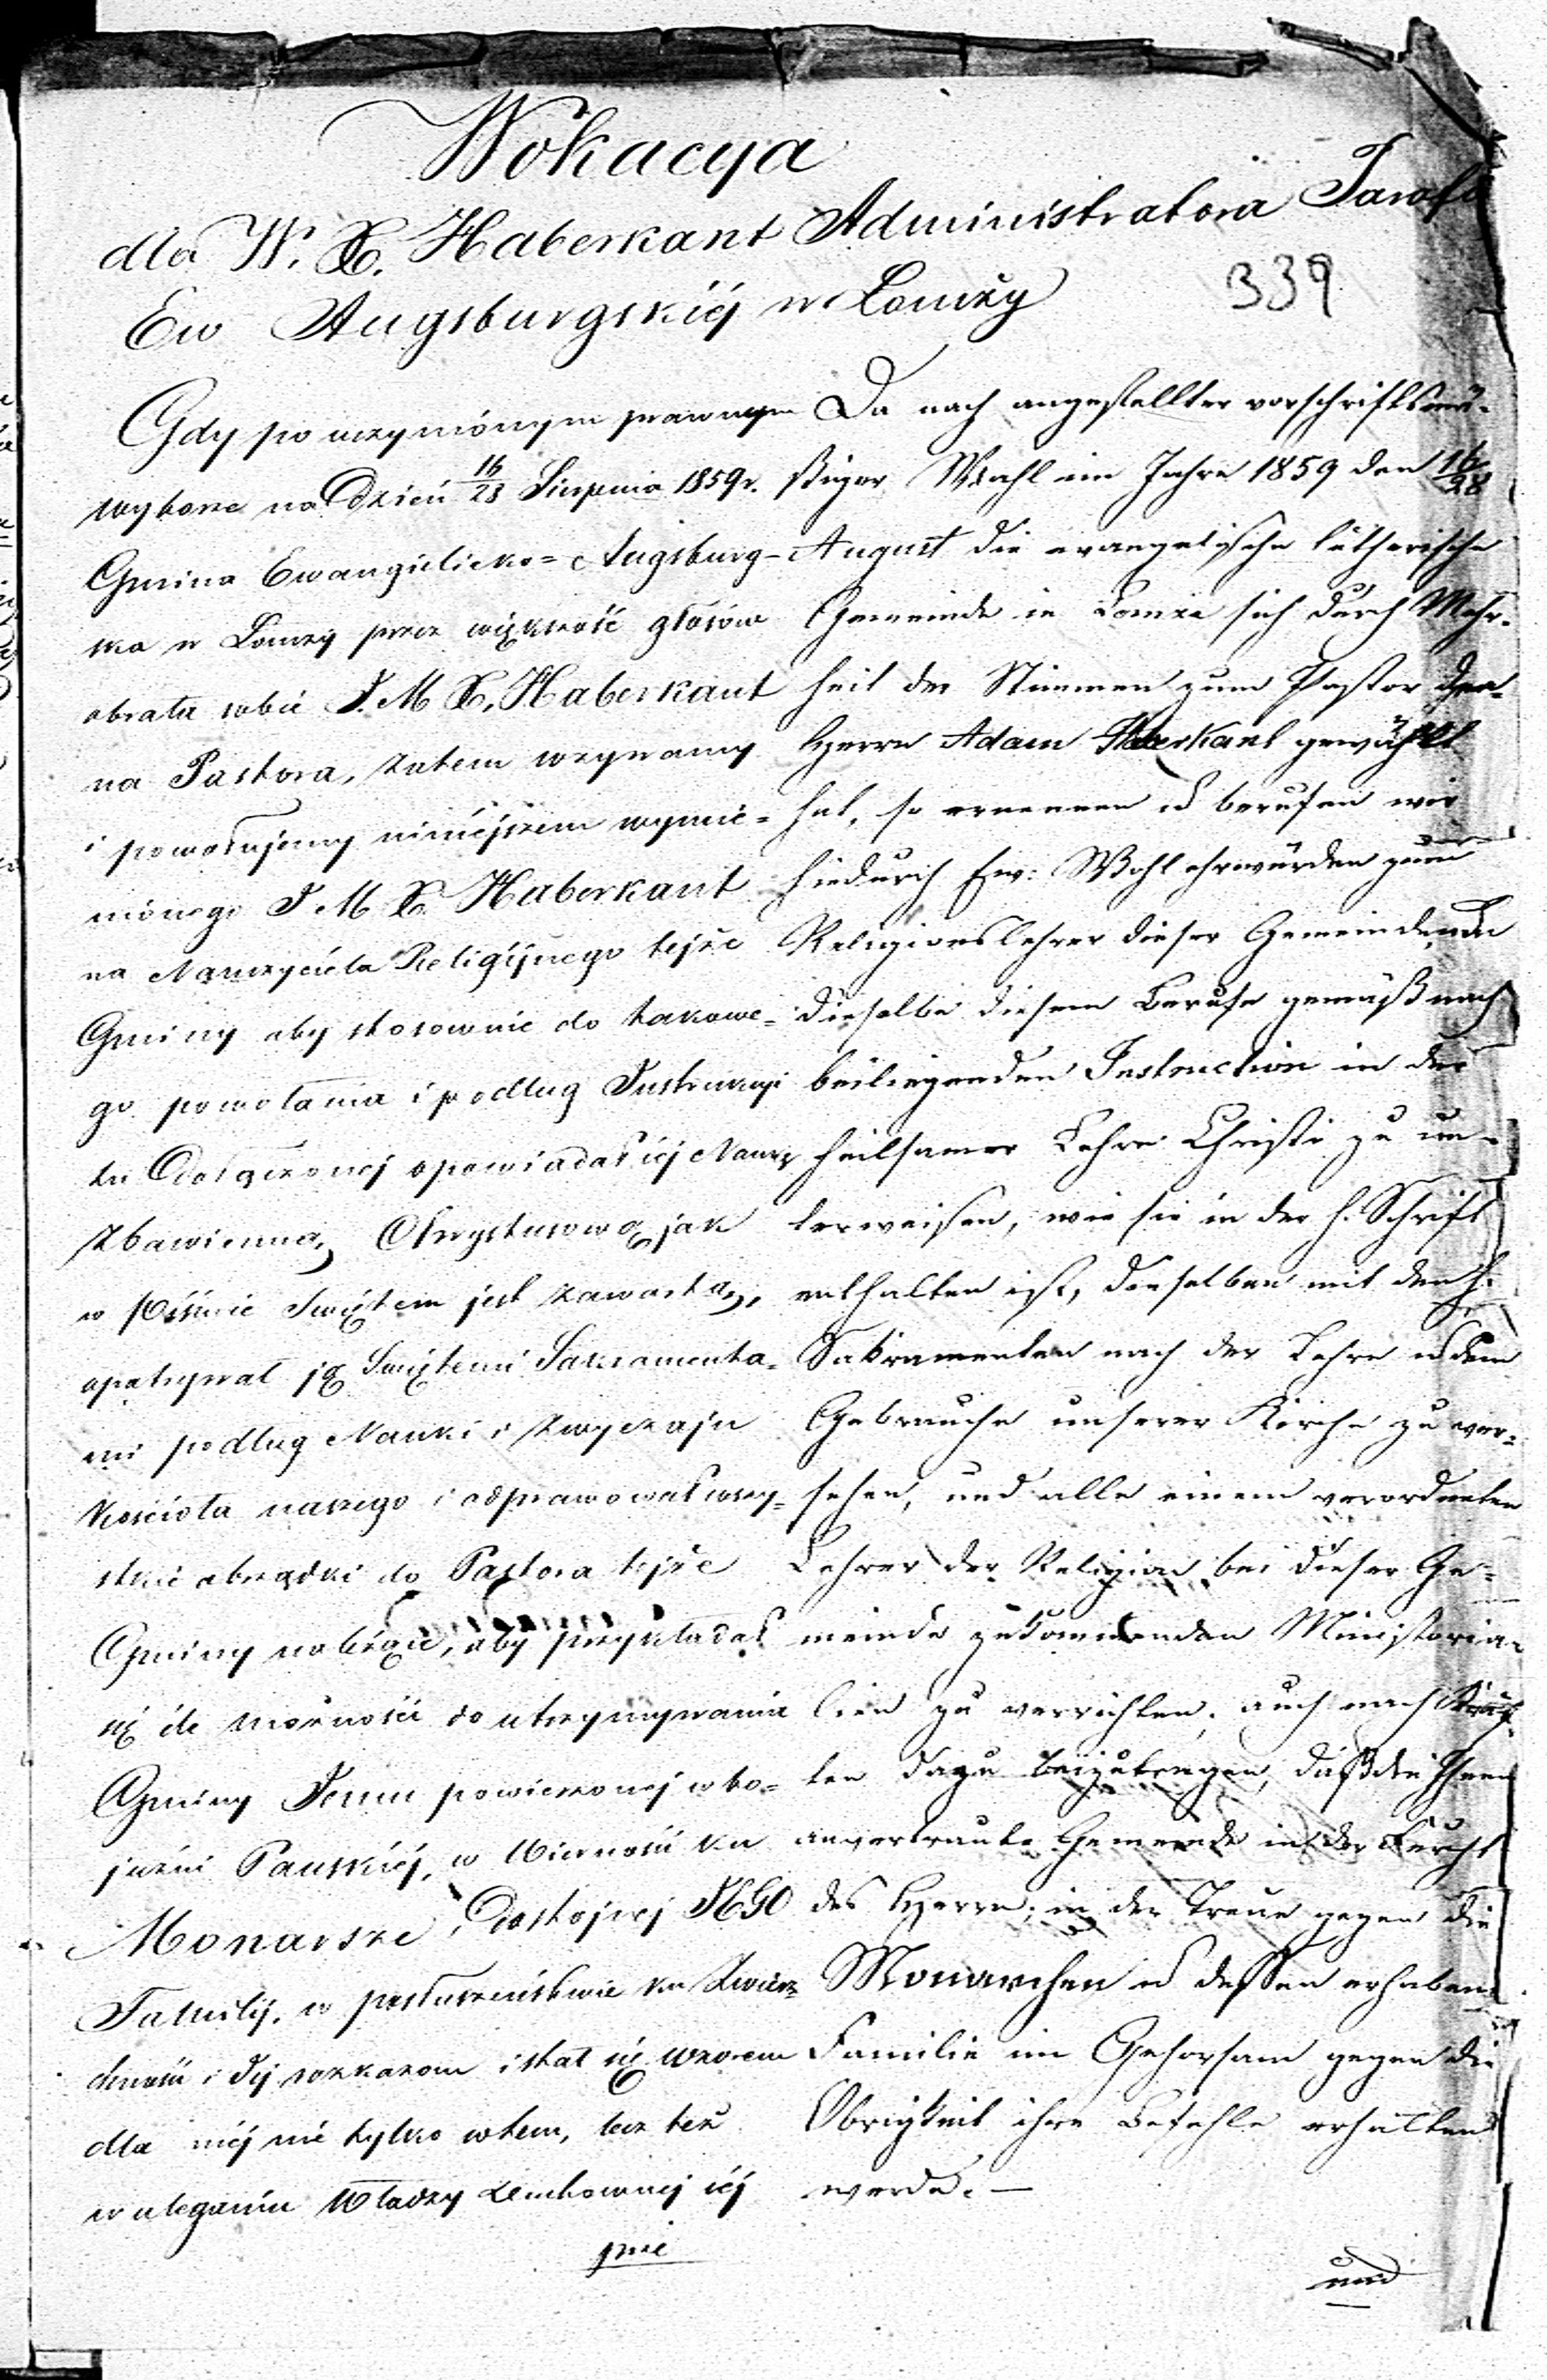 Wokacya
dla W. X. Haberkant Administratora Parafii
Ew Augsburgskiéj w Łomży
339
Gdy po uczynionym prawnym
wyborze na Dzień 16/28 Sierpnia 1859 r.
Gmina Ewangielicko=Augsburg-
ska w Łomży przez większość głosów
obrała sobie J. M X. Haberkant
na Pastora, zatem wzywamy
i powołujemy niniéjszem wymie=
nionego J M X Haberkant
na Nauczyciela Religijnego tejże
Gminy aby stosownie do takowe=
go powołania i podług Instrukcyi
tu Dołączonej opowiadał iéj Naukę
Zbawienną, Chrystusową jak
w Piśmie Świętem jest zawartą,
opatrywał ją Świętemi Sakramenta=
mi podług Nauki i zwyczaju
Kościoła naszego i odprawował wszy=
stkie obrządki do Pastora tejże
Gminy należące, aby przykładał
się ile możności do utrzymywania
Gminy Jemu powierzonej w bo=
jaźni Pańskiéj, w Wierności ku
Monarsze i Dostojnej JEGO
Familij, w posłuszeństwie ku Zwierz=
chności i Jéj rozkazom i stał się wzorem
dla niéj nie tylko w tem, lecz też
w uleganiu Władzy Duchownej iéj
prze
Da nach angestellter vorschriftsmä-
ßiger Wahl im Jahre 1859 den 16/28
August die evangelische lutherische
Gemeinde in Lomza sich durch Mehr-
heit der Stimmen zum Pastor den
Herrn Adam Haberkant gewählt
hat, so ernennen u berufen wir
hiedurch Ew: Wohlehrwürden zum
Religionslehrer dieser Gemeinde, um
dieselbe diesem Berufe gemäß nach
beiliegenden Instruction in der
heilsamen Lehre Christi zu un-
terweisen, wie sie in der h. Schrift
enthalten ist, dieselben mit den h.
Sakramenten nach der Lehre u dem
Gebrauche unserer Kirche zu ver=
sehen, und alle einem verordneten
Lehrer der Religion bei dieser Ge=
meinde zukommenden Ministeria-
lien zu verrichten, auch nach Kräf-
ten dazu beizutragen, daß die Ihnen
anvertraute Gemeinde in der Furcht
des Herrn, in der Treue gegen die
Monarchen u dessen erhabene
Familie im Gehorsam gegen die
Obrigkeit ihre Befehle erhalten
werde. —
und